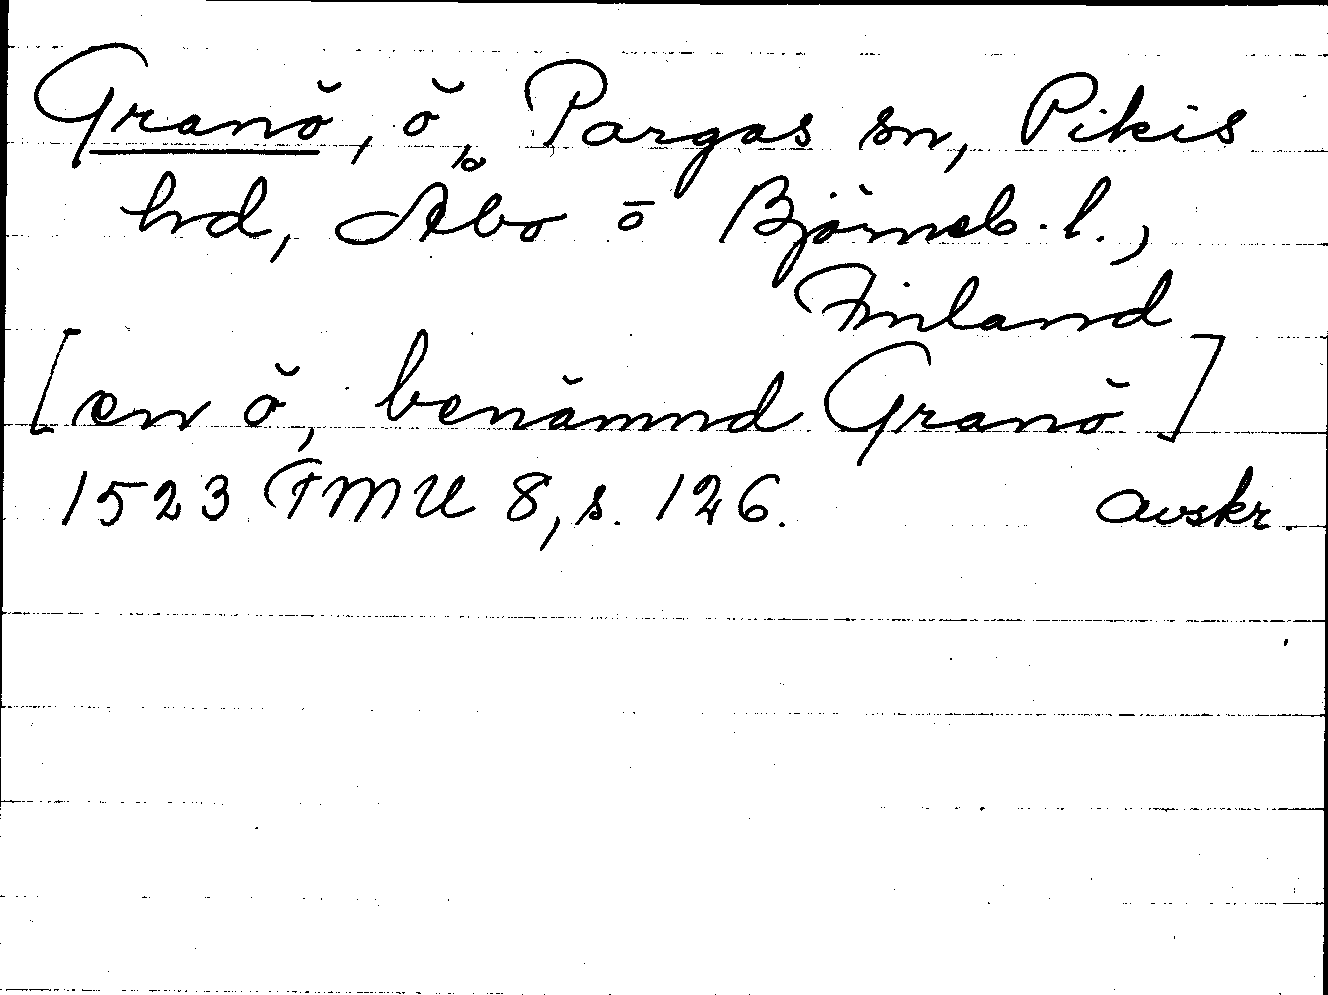 Granö, ö, Pargas sn, Pikis
hd, Åbo o Björneb. l.,
Finland
[en ö, benämnd Granö]
1523 FMU 8, s. 126. avskr.